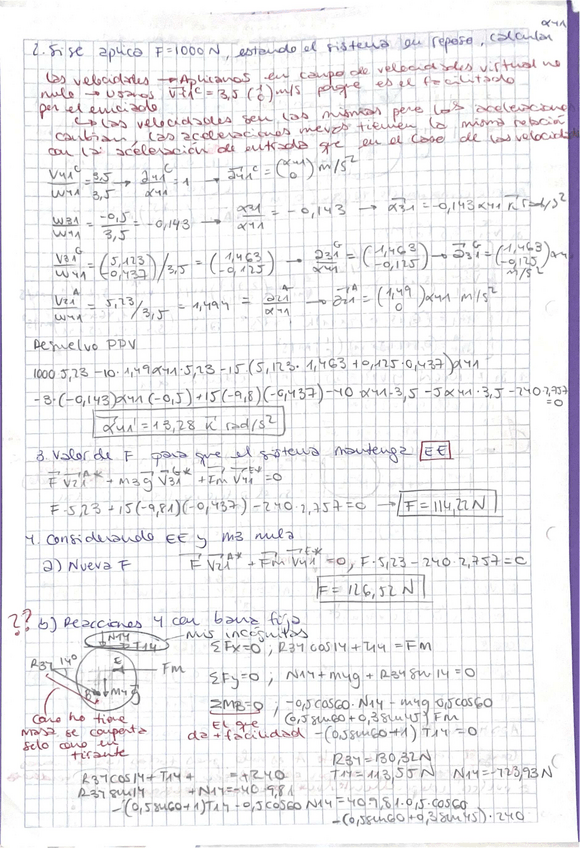 α41
2. Si se aplica F=1000N, estando el sistema en reposo, calcular
las velocidades → Aplicamos en campo de velocidades virtual no
nulo → Usamos V41^C = 3,5 (1 0) m/s porque es el facilitado
por el enunciado
↳ las velocidades son las mismas pero las aceleraciones
cambian, las aceleraciones menos tienen la misma relación
con la aceleración de entrada que en el caso de las velocidades
V41^C/ω41 = 3,5/3,5 → a41^C/α41 = 1 → a41^C = (α41 0) m/s²
ω31/ω41 = -0,5/3,5 = -0,143 → α31/α41 = -0,143 → α31 = -0,143 α41 K rad/s²
V31^G/ω41 = (5,123 -0,437)/3,5 = (1,463 -0,125) → a31^G/α41 = (1,463 -0,125) → a31^G = (1,463 -0,125) α41 m/s²
V21^A/ω41 = 5,23/3,5 = 1,494 = a21^A/α41 → a21^A = (1,49 0) α41 m/s²
Resuelvo PPV
1000·5,23 -10·1,49α41·5,23 -15(5,123·1,463+0,125·0,437)α41
-3·(-0,143)α41(-0,5)+15(-9,8)(-0,437)-40 α41·3,5 -5α41·3,5 -240·2,757 =0
α41 = 13,28 K rad/s²
3. Valor de F para que el sistema mantenga EE
F V21^A* + m3g V31^G* + Fm V41^E* = 0
F·5,23 + 15(-9,81)(-0,437) -240·2,757=0 → F=114,22N
4. Considerando EE y m3 nula
a) Nueva F F V21^A* + Fm V41^E* =0, F·5,23-240·2,757=0
F=126,52N
?? b) Reacciones 4 con barra fija
N14 T14 mis incógnitas
R34 14° E Fm
B m4g
ΣFx=0; R34 cos14 + T14 = Fm
ΣFy=0; N14+m4g + R34sen14 =0
ΣMB=0; -0,5cos60·N14 - m4g 0,5cos60
El que da + facilidad
(0,5sen60+0,38sen45) Fm
-(0,5sen60+1) T14 =0
Como no tiene
masa se comporta
solo como un
tirante
R34=130,32N
T14=113,55N N14=-723,93N
R34cos14+T14+ = +240
R34sen14 +N14=-40·9,81
-(0,5sen60+1)T14 -0,5cos60 N14 = 40·9,81·0,5·cos60
-(0,5sen60+0,38sen45)·240